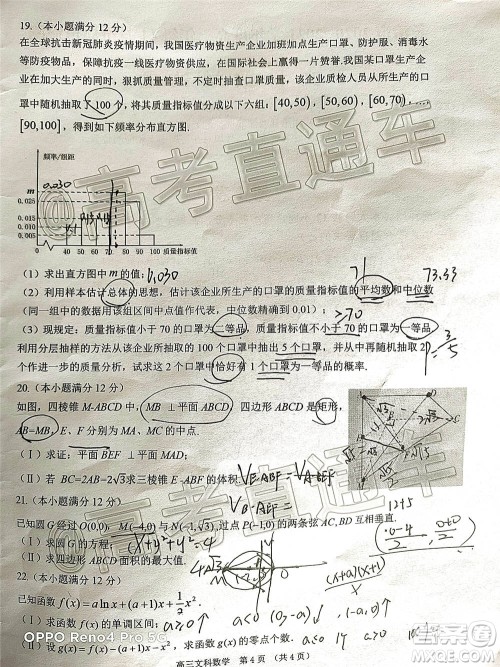 19.（本小题满分 12 分）
在全球抗击新冠肺炎疫情期间，我国医疗物资生产企业加班加点生产口罩、防护服、消毒水
等防疫物品，保障抗疫一线医疗物资供应，在国际社会上赢得一片赞誉．我国某口罩生产企业
在加大生产的同时，狠抓质量管理，不定时抽查口罩质量，该企业质检人员从所生产的口
罩中随机抽取了 100 个，将其质量指标值分成以下六组：[40,50), [50,60), [60,70),…,
[90,100]，得到如下频率分布直方图．
频率/组距
0.030
m
0.025
0.015
0.010
0.005
40 50 60 70 80 90 100 质量指标值
（1）求出直方图中 m 的值； 0.030
71 73.33
（2）利用样本估计总体的思想，估计该企业所生产口罩的质量指标值的平均数和中位数
（同一组中的数据用该组区间中点值作代表，中位数精确到 0.01）；
≥70
（3）现规定：质量指标值小于 70 的口罩为二等品，质量指标值不小于 70 的口罩为一等品．
利用分层抽样的方法从该企业所抽取的 100 个口罩中抽出 5 个口罩，并从中再随机抽取 2
个作进一步的质量分析，试求这 2 个口罩中恰好有 1 个口罩为一等品的概率．
P=3/5
20.（本小题满分 12 分）
如图，四棱锥 M-ABCD 中，MB⊥平面 ABCD，四边形 ABCD 是矩形，
AB=MB，E、F 分别为 MA、MC 的中点．
（Ⅰ）求证：平面 BEF⊥平面 MAD；
（Ⅱ）若 BC=2AB=2√3求三棱锥 E-ABF 的体积．
V E-ABF = V A-BEF
21.（本小题满分 12 分）
已知圆 O 经过 O(0,0)，M(-4,0) 与 N(-1,√3)，过点 P(-1,0) 的两条弦 AC, BD 互相垂直．
（Ⅰ）求圆 O 的方程；
（Ⅱ）求四边形 ABCD 面积的最大值．
12+5
22.（本小题满分 12 分）
(x+a)(x+1)
x
已知函数 f(x)=a ln x+(a+1)x+1/2 x²．
（Ⅰ）求函数 f(x) 的单调区间；
求函数 g(x) 的零点个数．
高三文科数学 第 4 页 （共 4 页）
高考直通车
OPPO Reno4 Pro 5G